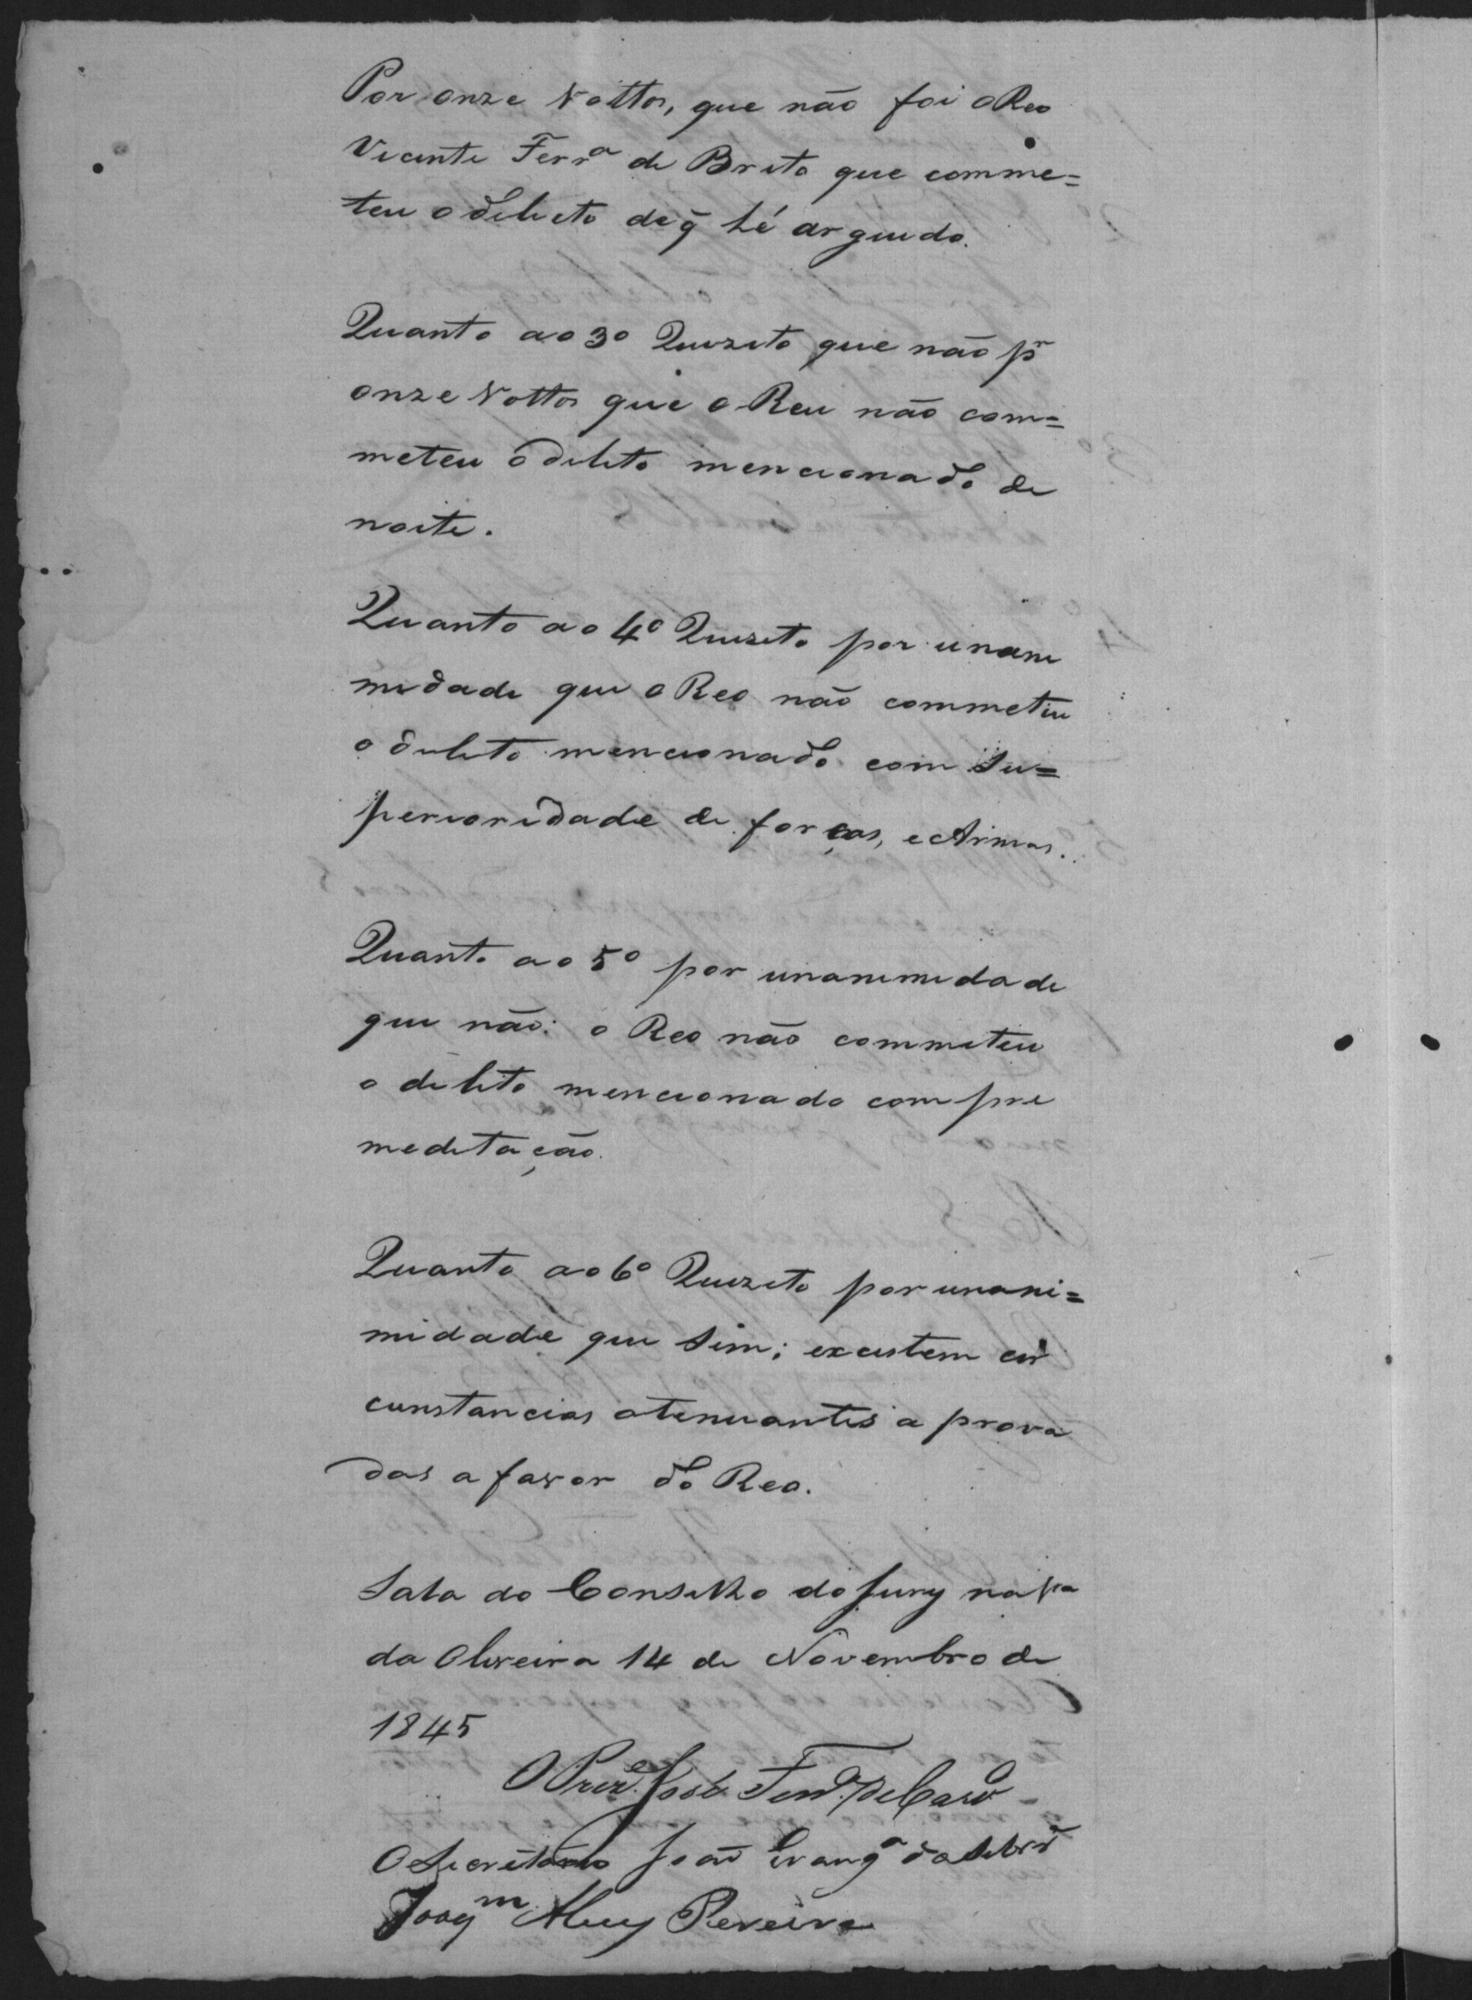 Por onze Vottos, que não foi o Reo
Vicente Ferrª de Brito que comme=
teu o delicto de q̃ hé arguido.
Quanto ao 3º Quizito que não pr
onze Vottos que o Reu não com=
meteu o delito mencionado de
noite.
Quanto ao 4º Quizito por unani
midade que o Reo não commeteu
o delito mencionado com Su=
perioridade de forças, e Armas.
Quanto ao 5º por unanimidade
que não: o Reo não commeteu
o delito mencionado com pre
meditação.
Quanto ao 6º Quizito por unani=
midade que sim; existem cir
cunstancias atenuantes a prova
das a favor do Reo.
Sala do Conselho do Jury na Vª
da Oliveira 14 de Novembro de
1845
O Prezde José Ferrª de
O Secretario João Evangª da
Joaqm Alves Pereira